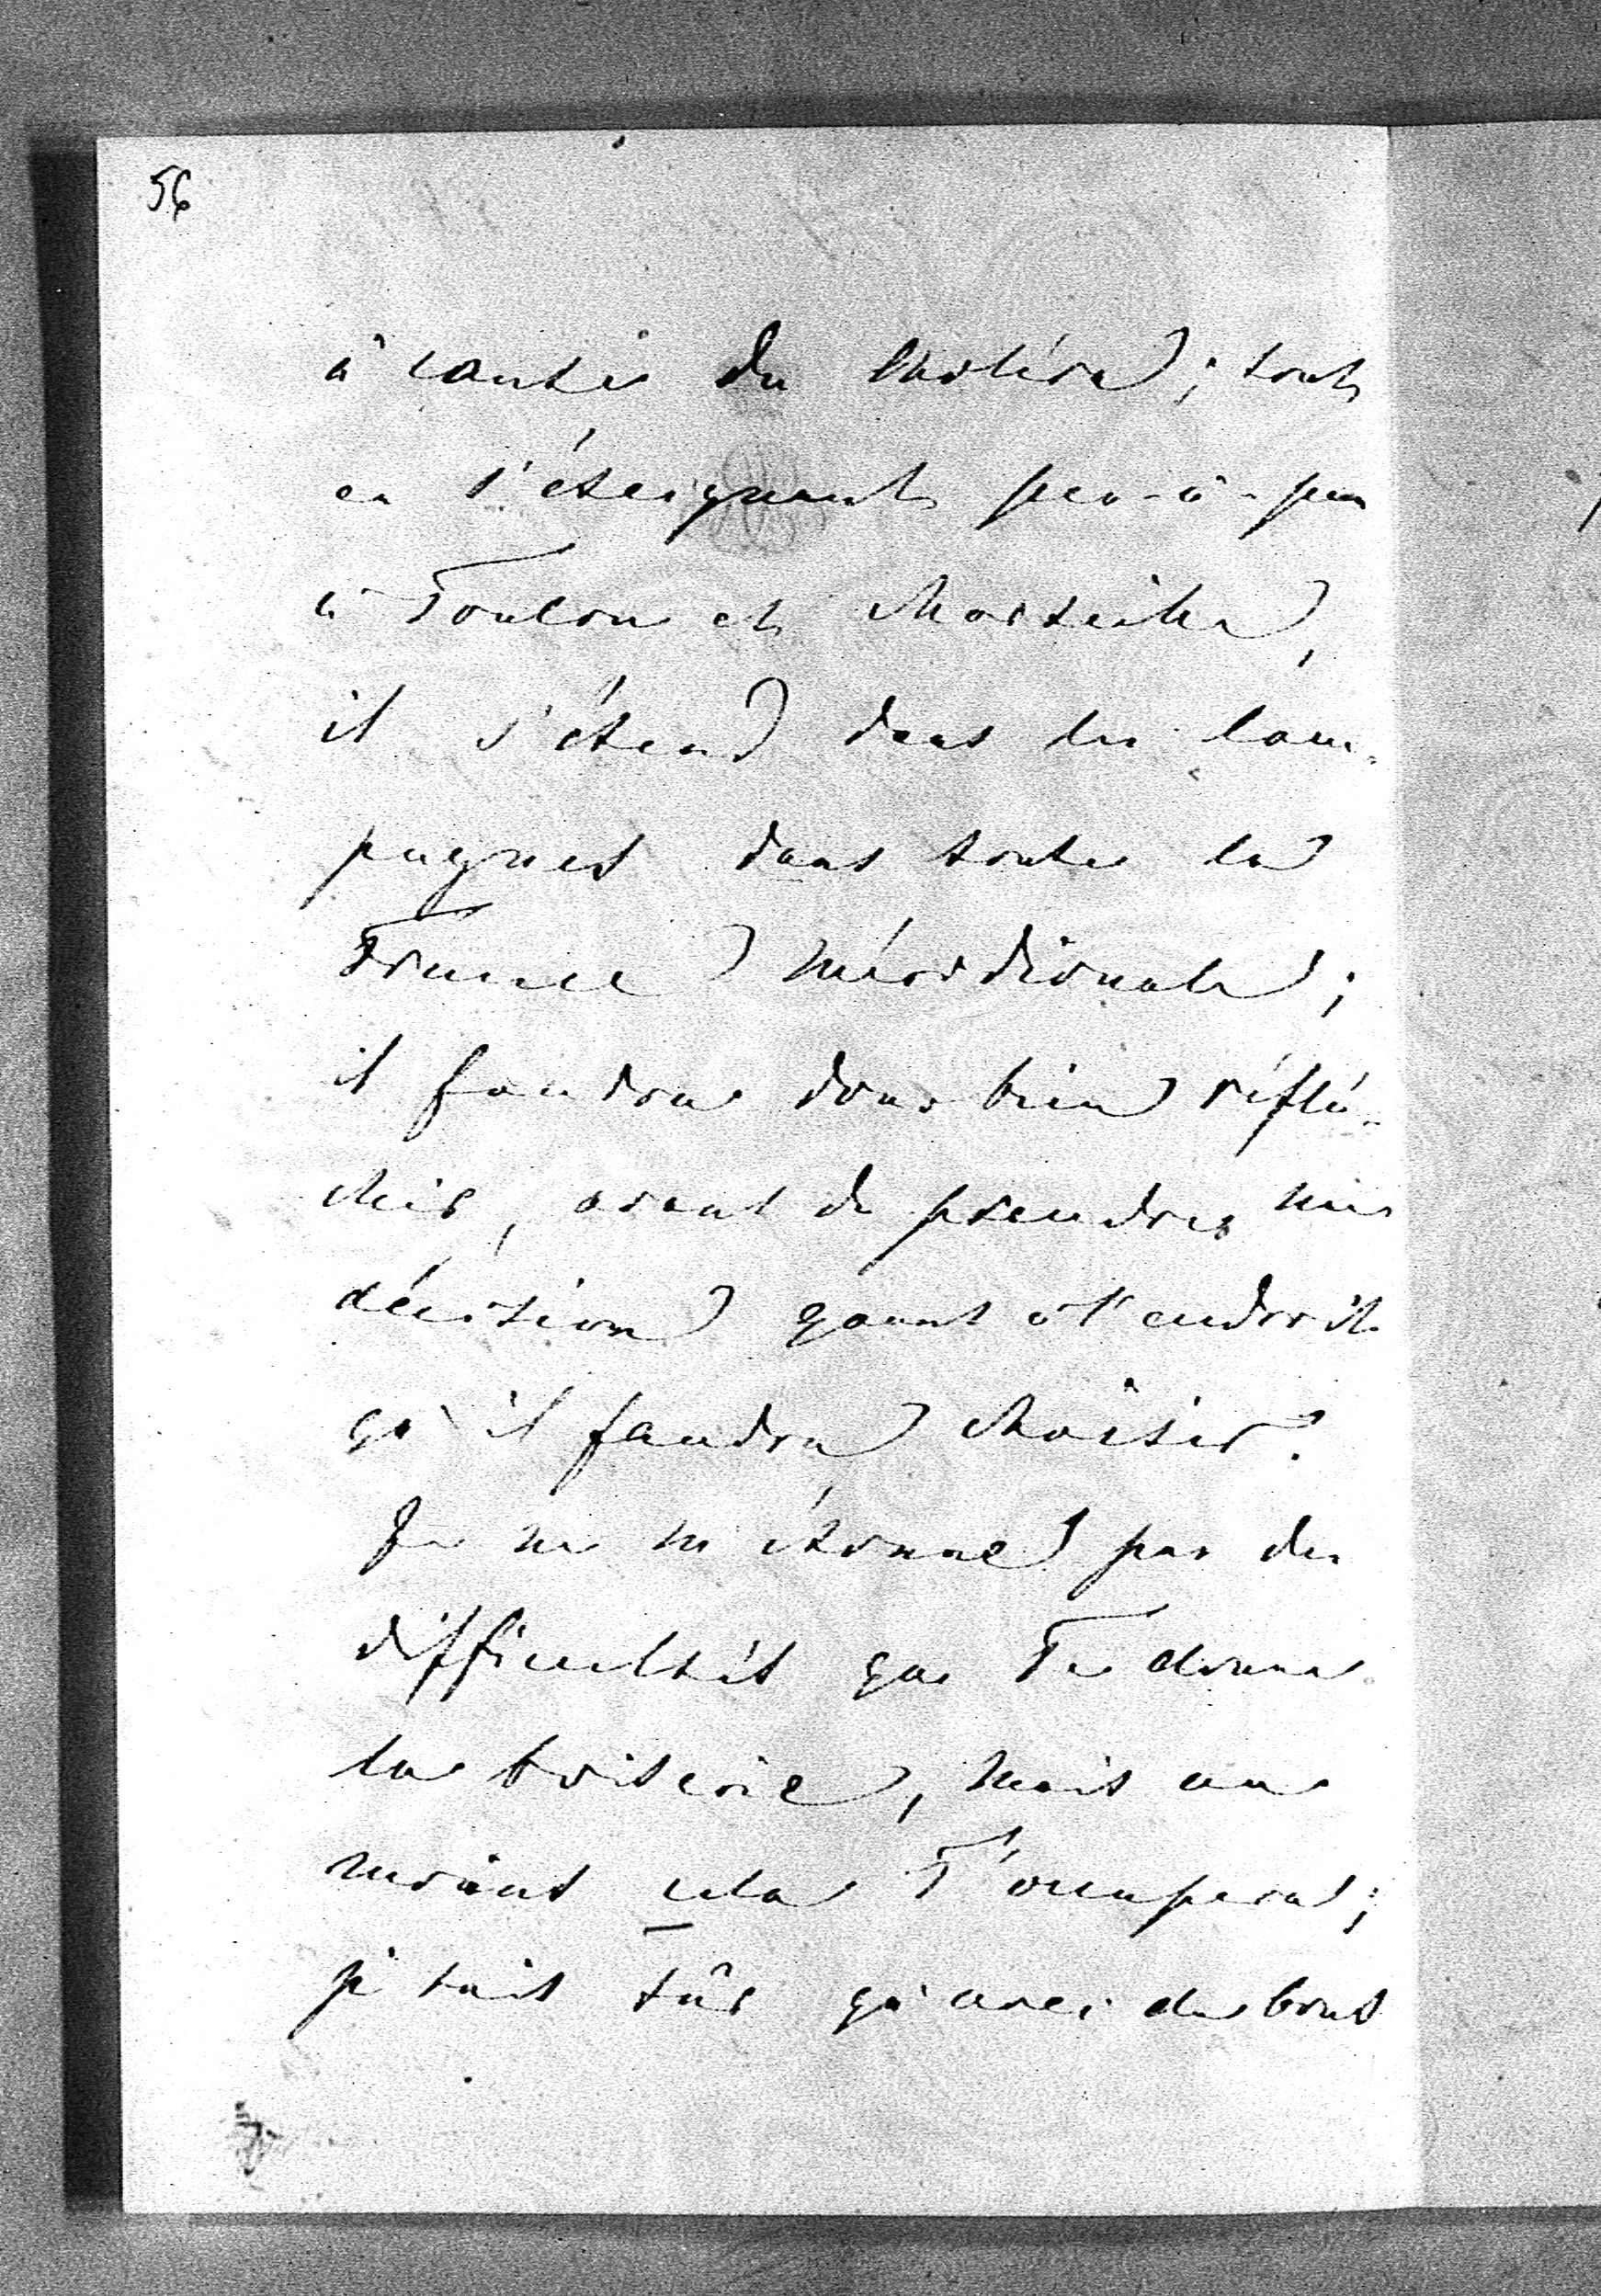 56
à cause du choléra; tout
en s'éteignant peu-à-peu
à Toulon et Marseille,
il s'étend dans les cam-
pagnes dans toute la
France méridionale;
il faudra donc bien réflé-
chir, avant de prendre une
décision quant à l'endroit
qu'il faudra choisir.
Je ne m'étonne pas des
difficultés que Te donne
la boiserie, mais au
moins cela T'occupera;
je suis sûr qu'avec de bons